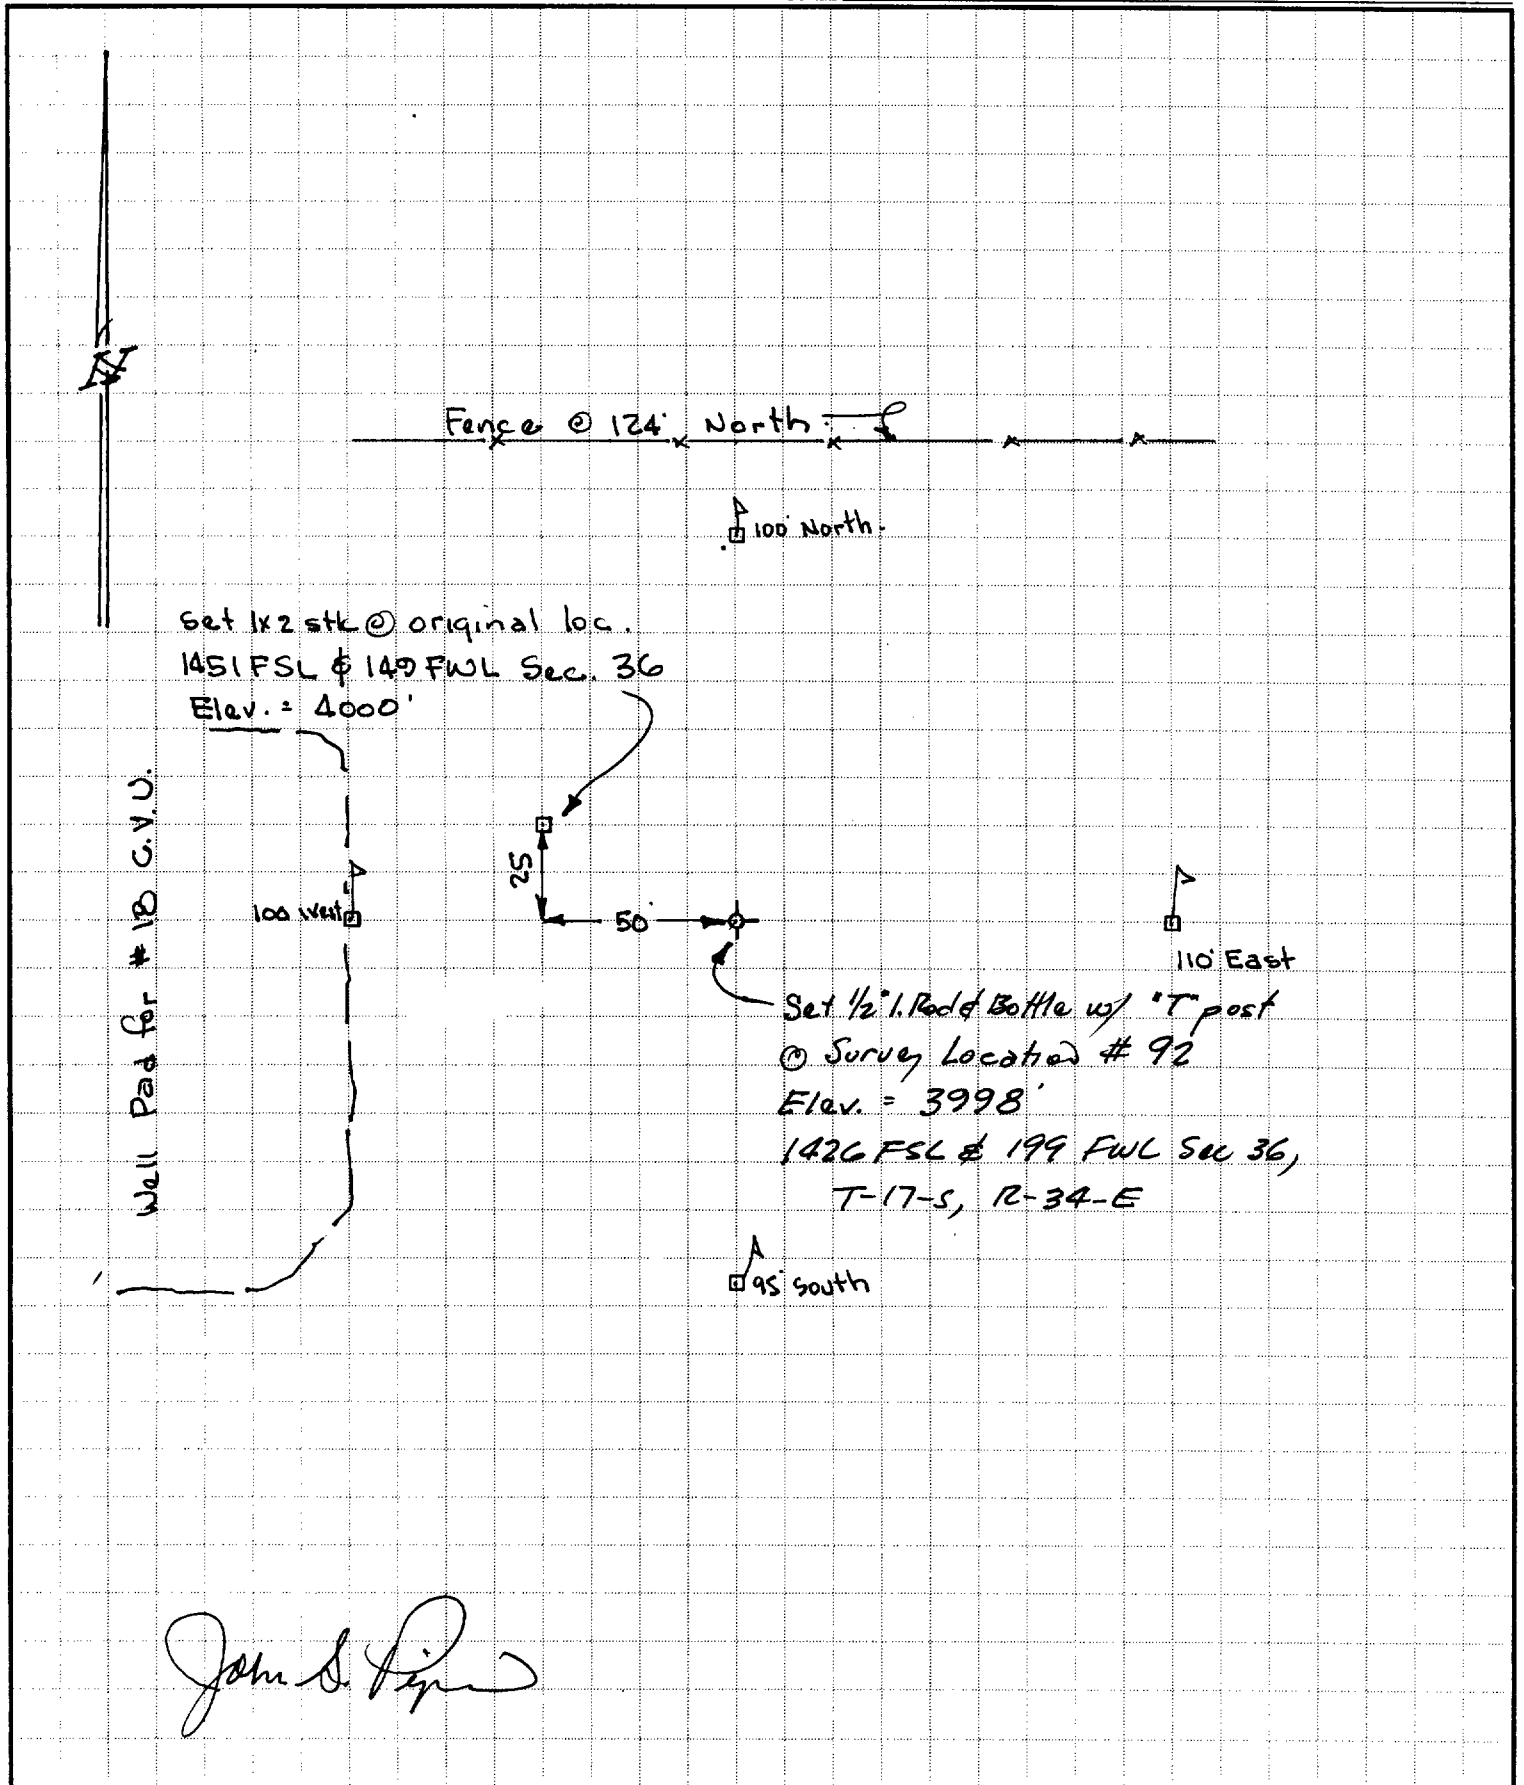 N
Fence @ 124' North.
100' North.
Set 1x2 stk @ original loc.
1451 FSL & 149 FWL Sec. 36
Elev. = 4000'
Well Pad for # 18 C.V.U.
25
100 West
50'
110' East
Set 1/2" I. Rod & Bottle w/ "T" post
@ Survey Location # 92
Elev. = 3998'
1426 FSL & 199 FWL Sec 36,
T-17-S, R-34-E
95' South
John S. Piper